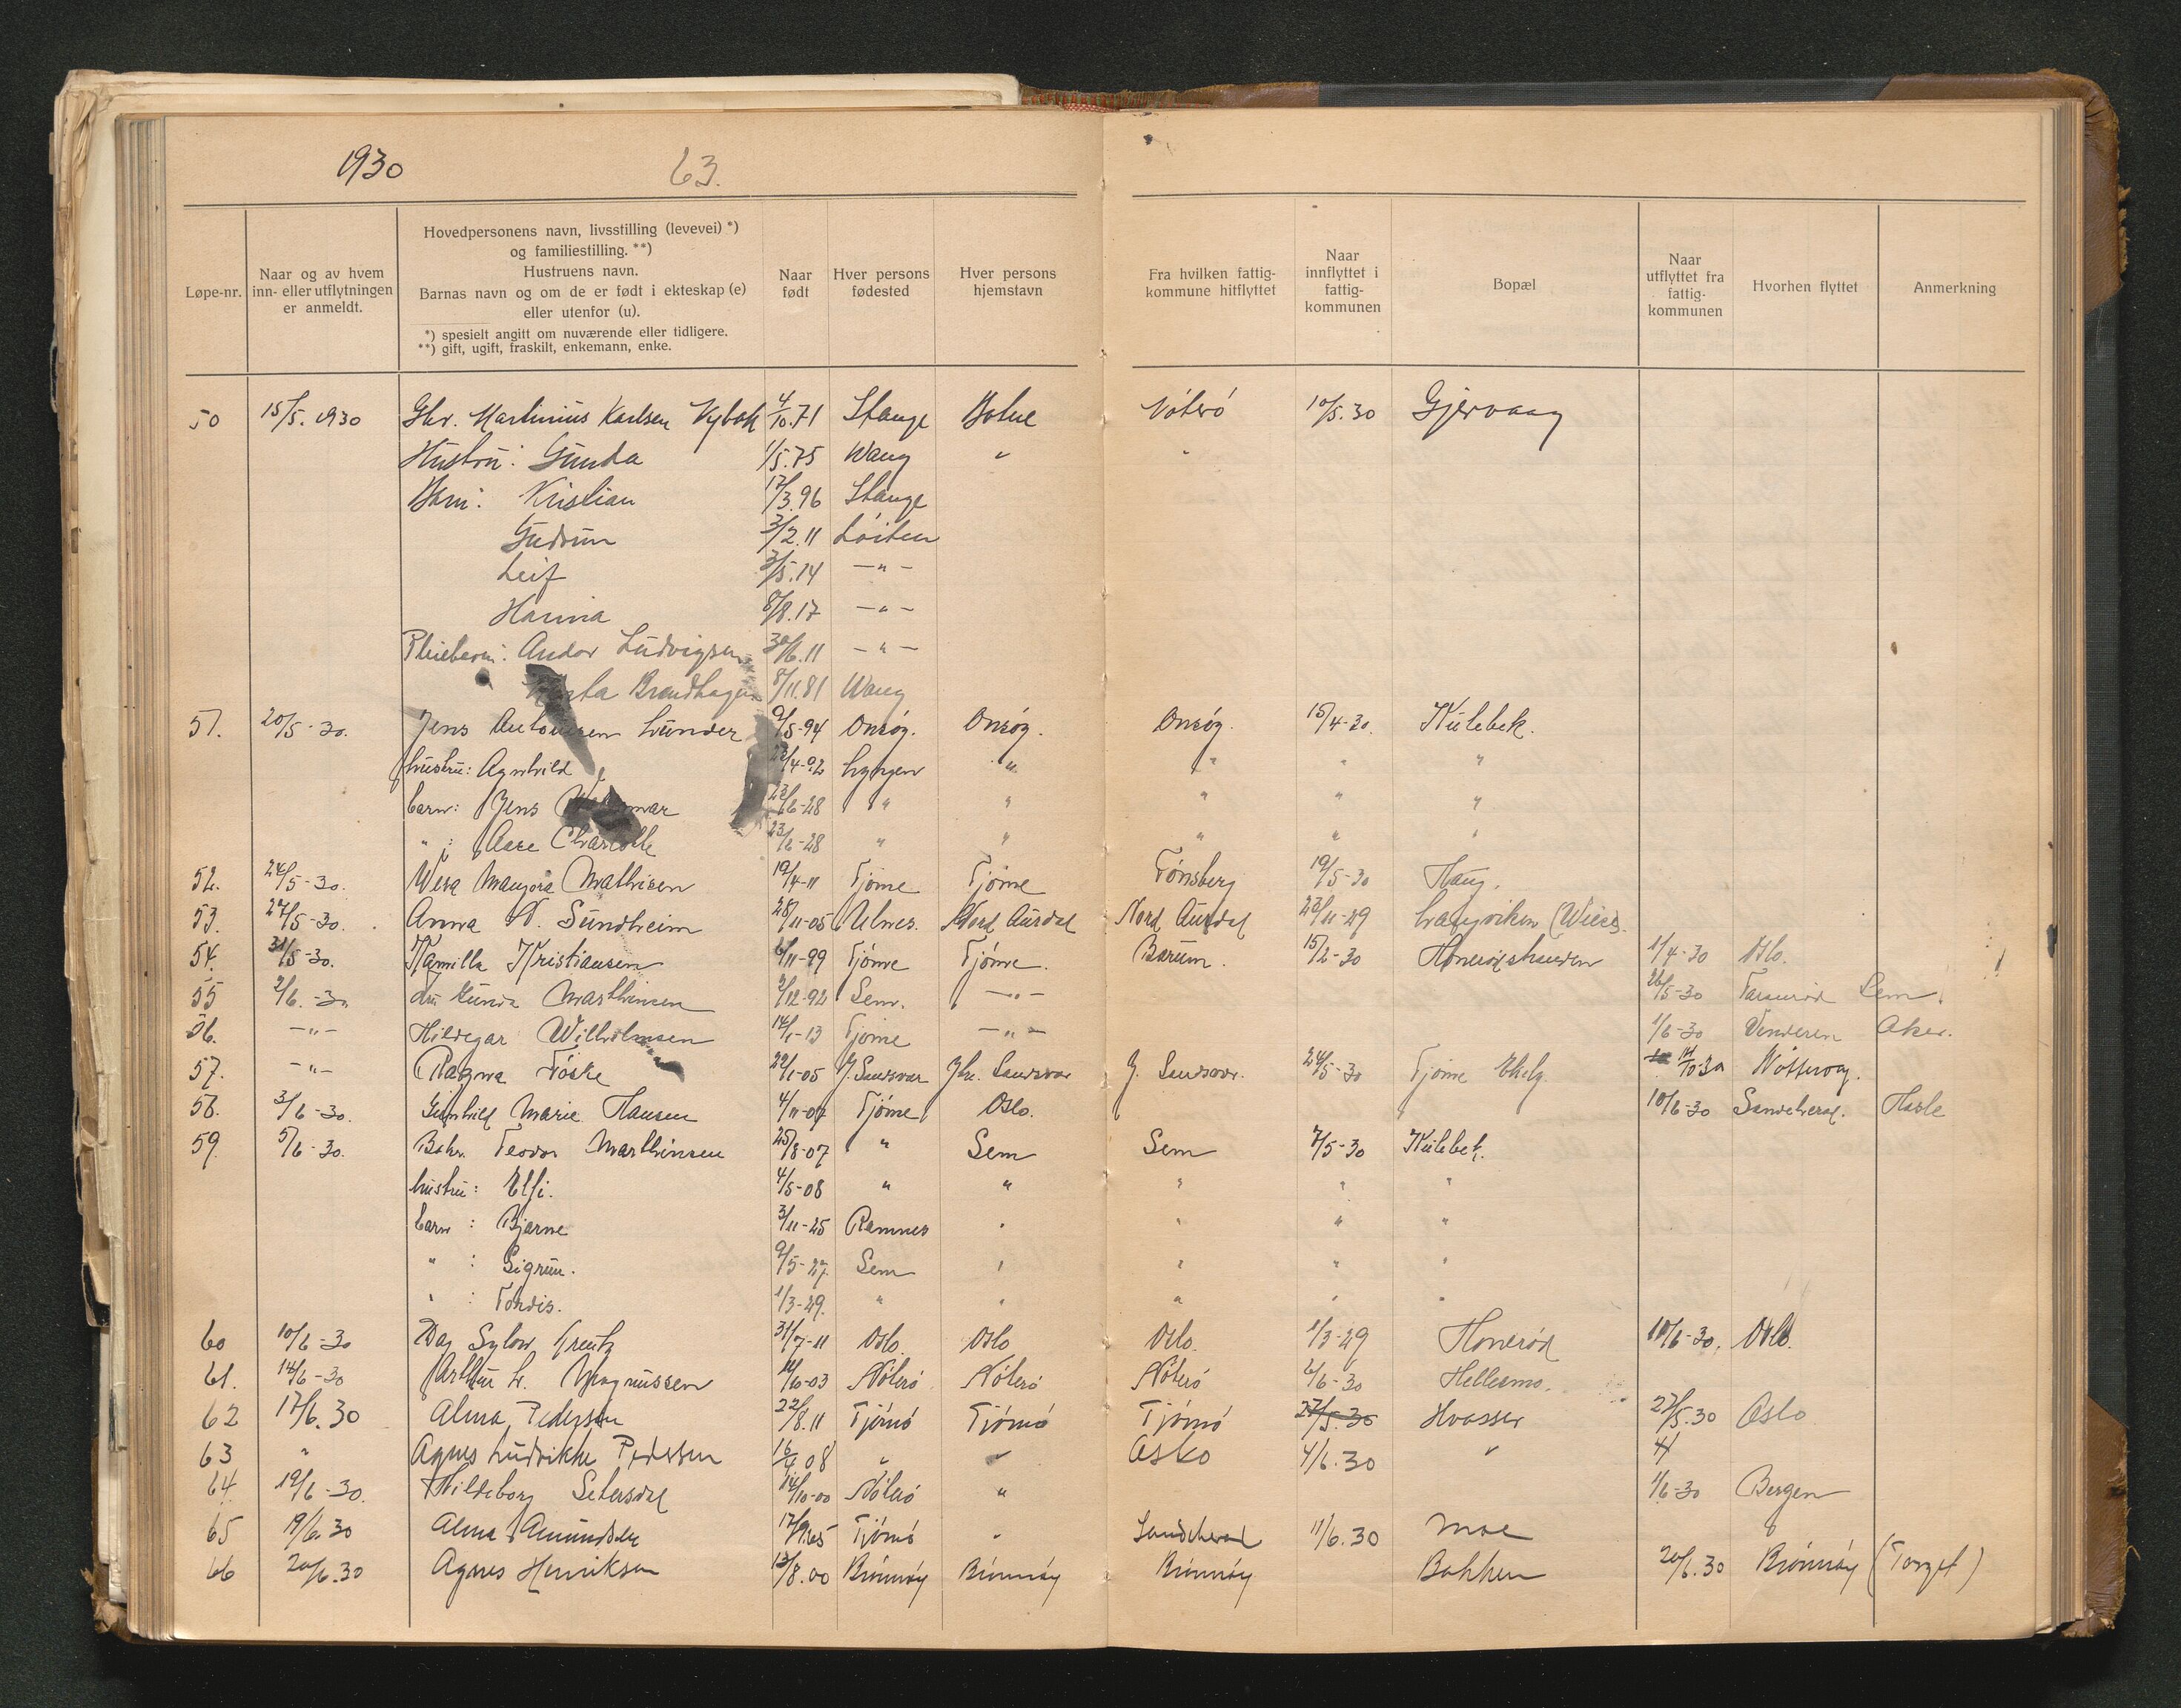 1930 63.
Løpe-nr. | Naar og av hvem inn- eller utflytningen er anmeldt. | Hovedpersonens navn, livsstilling (levevei) *) og familiestilling. **) Hustruens navn. Barnas navn og om de er født i ekteskap (e) eller utenfor (u). *) spesielt angitt om nuværende eller tidligere. **) gift, ugift, fraskilt, enkemann, enke. | Naar født | Hver persons fødested | Hver persons hjemstavn | Fra hvilken fattigkommune hitflyttet | Naar innflyttet i fattigkommunen | Bopæl | Naar utflyttet fra fattigkommunen | Hvorhen flyttet | Anmerkning
50 15/5. 1930 Gbr. Martinius Karlsen 4/10.71 Stange Botne Nóteró 10/5.30 Gjervaag
Hustru: Gunda 1/5.75 Wang " "
Barn: Kristian 17/3.96 Stange
Gudrun 3/2.11 Lóiten
Leif 3/5.14 -"-
Hanna 8/8.17 -"-
Pleiebarn: Andor Ludvigsen 30/6.11 -"-
Brendhagen 8/11.81 Wang
51. 20/5-30. Jens Antonisen Lunder 9/5-94 Onsóy. Onsóy. Onsóy. 15/4-30. Kulebek.
hustru: Agnhild 22/4-92 Lyngen " " " "
barn: Jens 23/6-28 " " " " "
" : Aase Charlotte 23/6-28 " " " " "
52. 24/5-30. Wera Mathisen 19/4-11 Tjóme Tjóme Tónsberg 19/5-30 Haug.
53. 27/5-30. Anna N. Sundheim 28/11-05 Ulnes. Nord Aurdal Nord Aurdal 23/11-29 Langviken
54. 31/5-30. Kamilla Kristiansen 6/11-99 Tjóme Tjóme. Bærum. 15/2-30 1/4-30 Oslo.
55 2/6.-30 Gunda Marthinsen 2/12-92 Sem. -"- 26/5-30 Sem.
56. -"- Hildegar Wilhelmsen 14/1-13 Tjóme -"- 1/6-30 Vinderen Aker.
57. -"- Ragna Fóske 22/1-05 Y. Sandsvær Ytre. Sandsvær Y. Sandsvær. 24/5-30 Tjóme 14/10-30 Nótteróy.
58. 3/6-30. Gunhild Marie Hansen 4/11-07 Tjóme Oslo. " 10/6-30 Sandeherad. Hasle
59. 5/6-30. Teodor Marthinsen 25/8-07 " Sem Sem 7/5-30 Kulebek.
hustru: Elfi. 4/5-08 " " " " "
barn: Bjarne 3/11-25 Ramnes " " " "
" : Sigrun. 9/5-27. Sem " " " "
" : Tordis. 1/3-29. " " " " "
60 10/6-30 Dag Sylow Kreutz 31/7-11 Oslo. Oslo Oslo. 1/3-29 Honeród 10/6-30. Oslo.
61. 14/6-30 Arthur L. Magnussen 11/10-03 Nóteró Nóteró Nóteró 2/6-30 Hellesmo.
62 17/6.30 Alma Pedersen 22/8.11 Tjómó Tjómó Tjómó 27/5.30 Hvasser 27/5.30 Oslo
63 " Agnes Ludvikke Pedersen 16/4 08 " " Oslo 4/6.30 "
64 19/6-30. Hildeborg Setersdal 14/10-00 Nóteró " 1/6-30 Bergen
65 19/6.30 Alma Amundsen Tjómó " Sandeherad 11/6.30 Moe
66 20/6.30 Agnes Henriksen 13/8.00 Brónnóy Brónnóy Brónnóy Bakken 20/6.30 Brónnóy (Torget)